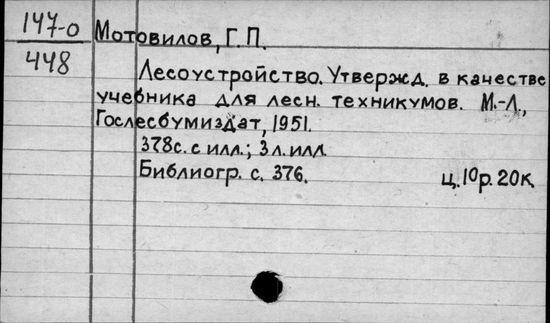 147-о
448
Мотовилов, Г.П.
Лесоустройство. Утвержд. в качестве
учебника для лесн. техникумов. М.-Л.,
Гослесбумиздат, 1951.
378с. с илл.; 3л. илл.
Библиогр. с. 376. ц. 10р. 20к.